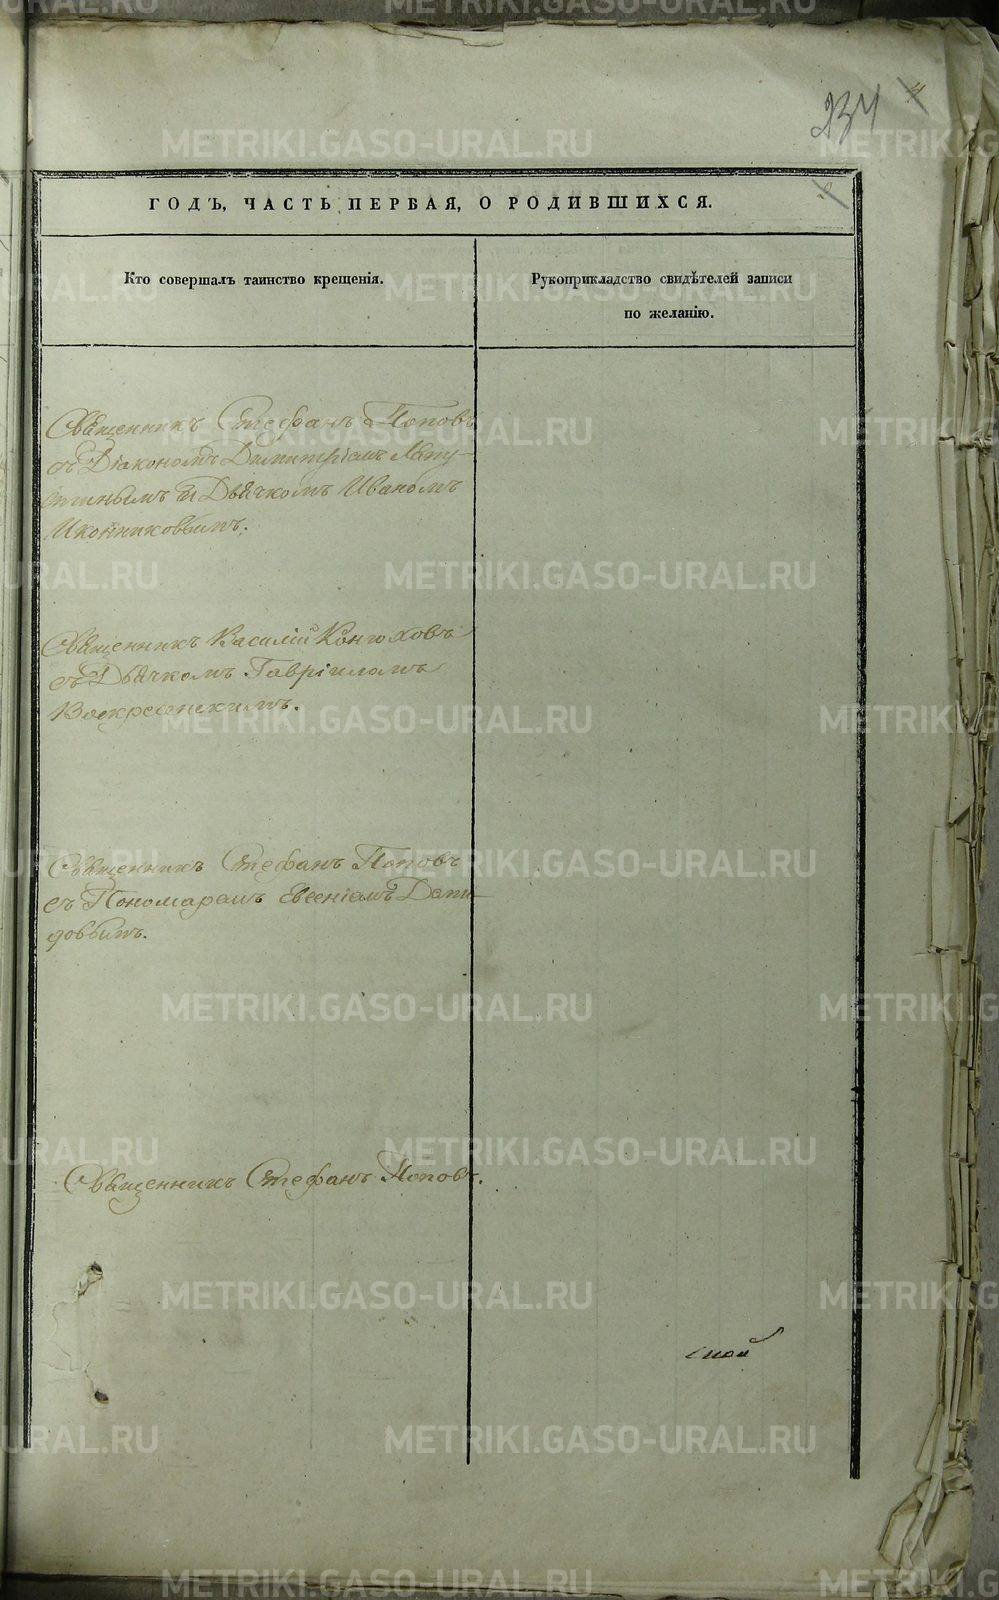 234
ГОДЪ, ЧАСТЬ ПЕРВАЯ, О РОДИВШИХСЯ.
Кто совершалъ таинство крещенія.
Рукоприкладство свидѣтелей записи
по желанію.
Священникъ Стефанъ Поповъ
съ Діакономъ Димитріемъ Лапу-
тинымъ и Дьячкомъ Иваномъ
Иконниковымъ.
Священникъ Василій Конюховъ
съ Дьячкомъ Гавріиломъ
Воскресенскимъ.
Священникъ Стефанъ Поповъ
съ Пономаремъ Евсеніемъ
довымъ.
Священникъ Стефанъ Поповъ.
METRIKI.GASO-URAL.RU